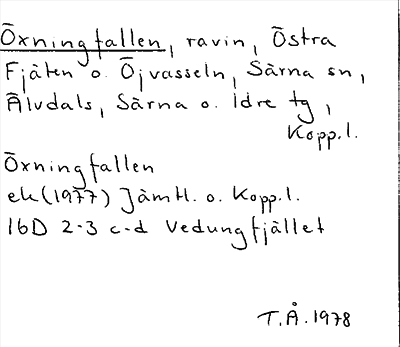 Öxningfallen, ravin, Östra
Fjäten o. Öjvasseln, Särna sn,
Älvdals, Särna o. Idre tg,
Kopp.l.
Öxningfallen
ek (1977) Jämtl. o. Kopp.l.
16D 2-3 c-d Vedungfjället
T.Å. 1978